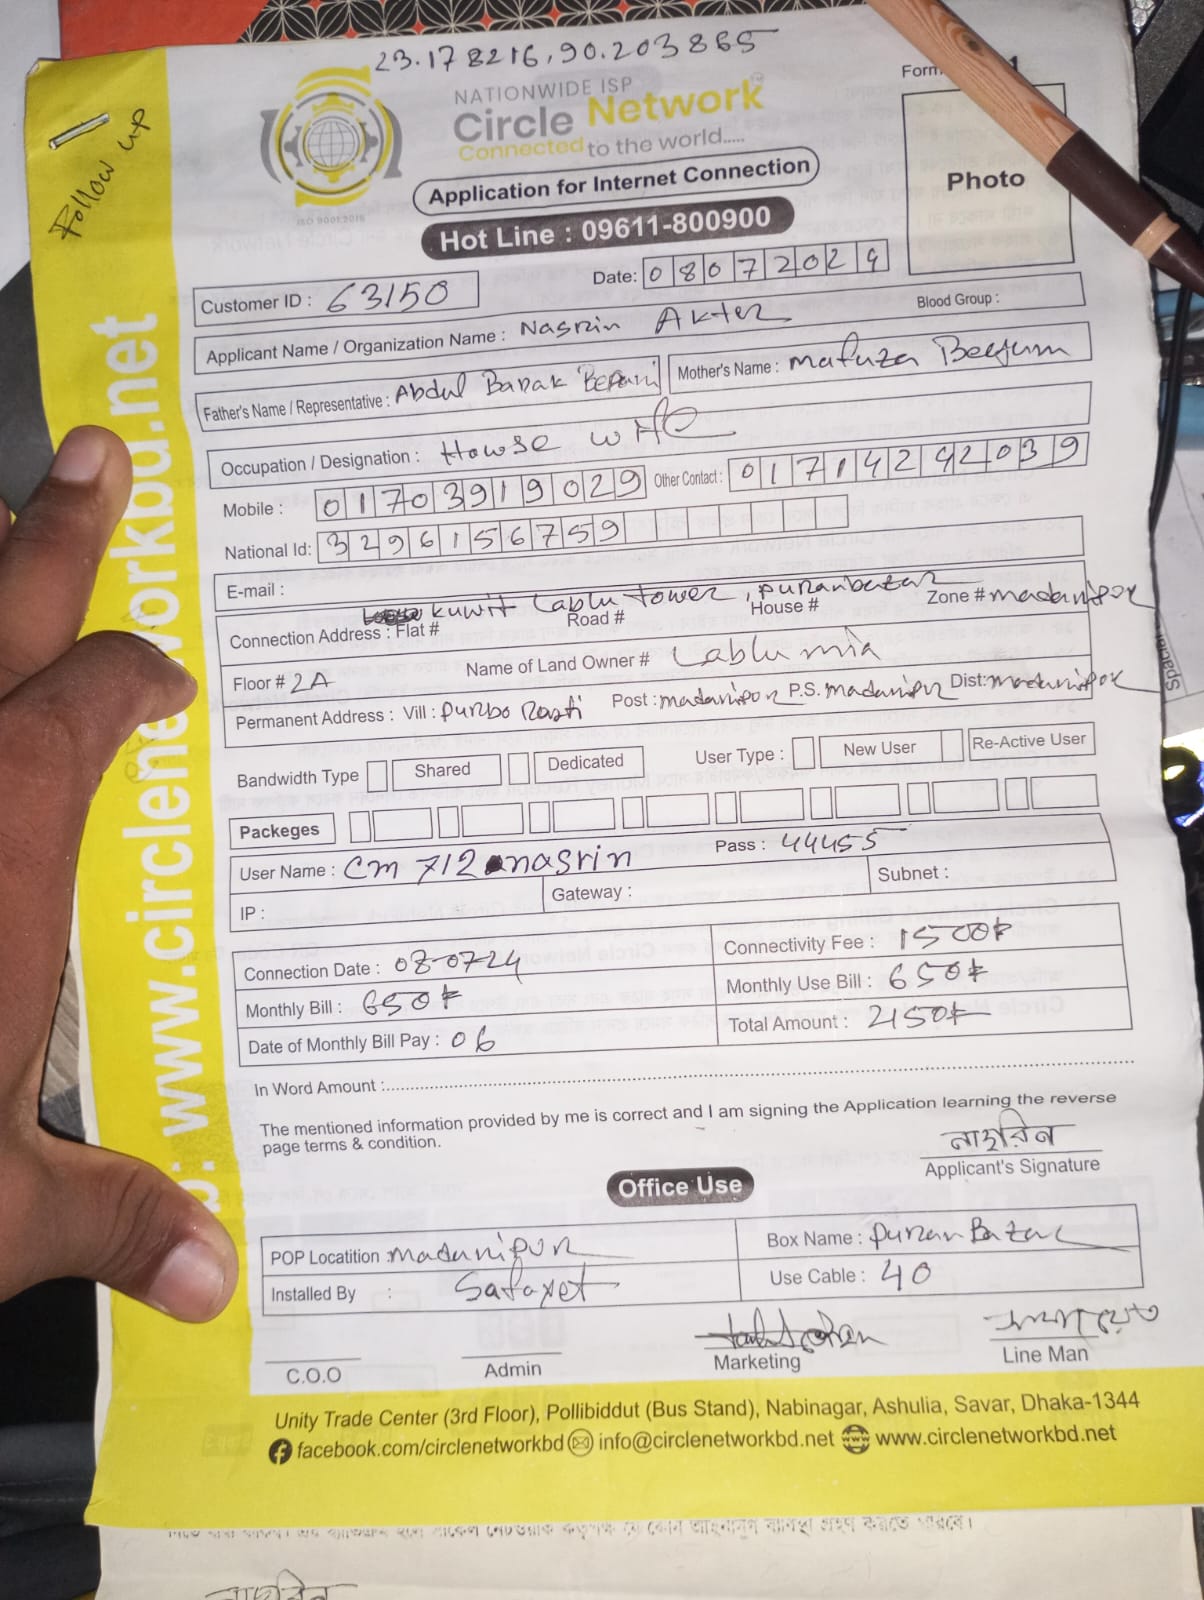 23.178216,90.203865
Follow up
NATIONWIDE ISP
Circle Network
Connected to the world.....
ISO 9001:2015
Application for Internet Connection
Hot Line : 09611-800900
Form
Photo
Date: 08072024
Customer ID : 63150
Applicant Name / Organization Name : Nasrin Akter
Blood Group :
Father's Name / Representative : Abdul Barak Bepari
Mother's Name : Mafuza Beegum
Occupation / Designation : Howse wife
Mobile : 01703919029 Other Contact : 01714242039
National Id: 3296156759
E-mail :
kuwit Lablu tower, puranbazar
Connection Address : Flat # Road # House # Zone # madaripor
Floor # 2A Name of Land Owner # Lablu mia
Permanent Address : Vill : purbo Rasti Post : madaripor P.S. madaripur Dist: madaripor
Bandwidth Type Shared Dedicated User Type : New User Re-Active User
Packeges
User Name : cm 712 nasrin Pass : 44455
IP : Gateway : Subnet :
Connection Date : 08-07-24 Connectivity Fee : 1500৳
Monthly Bill : 650৳ Monthly Use Bill : 650৳
Date of Monthly Bill Pay : 06 Total Amount : 2150৳
In Word Amount :
The mentioned information provided by me is correct and I am signing the Application learning the reverse
page terms & condition.
নাছরিন
Applicant's Signature
Office Use
POP Locatition : madaripur Box Name : puran Bazar
Installed By : Safayet Use Cable : 40
C.O.O Admin Marketing Line Man
Unity Trade Center (3rd Floor), Pollibiddut (Bus Stand), Nabinagar, Ashulia, Savar, Dhaka-1344
facebook.com/circlenetworkbd info@circlenetworkbd.net www.circlenetworkbd.net
: www.circlenetworkbd.net